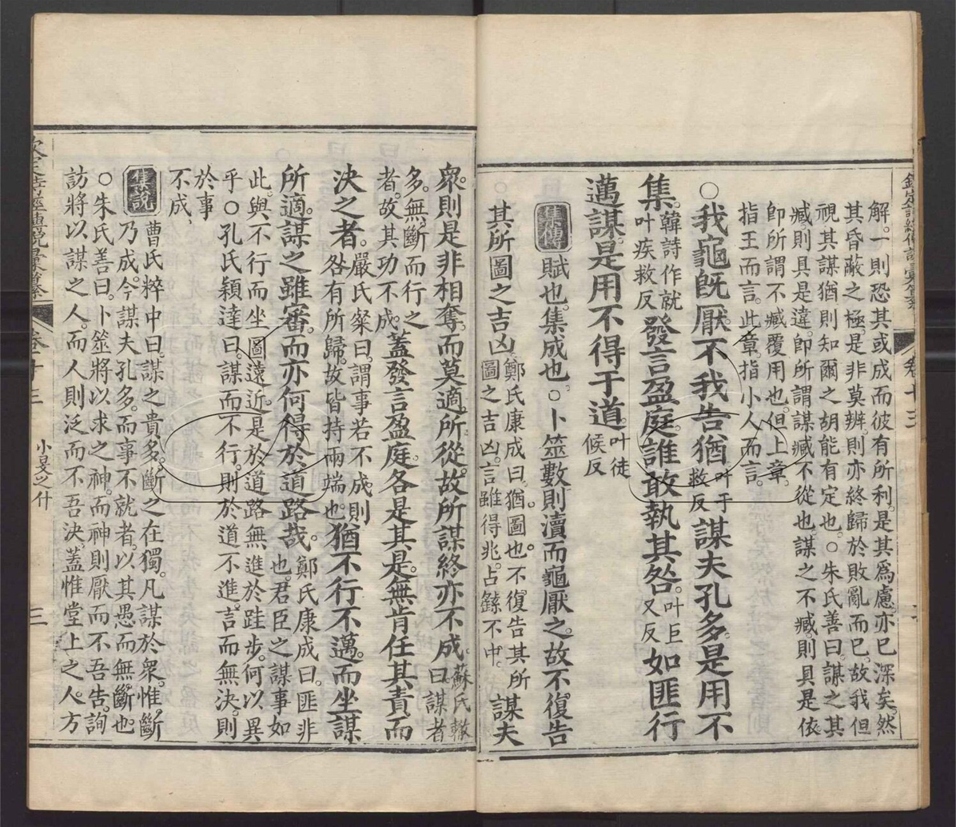 解。一則恐其或成而彼有所利。是其爲慮亦已深矣。然
其昏蔽之極。是非莫辨。則亦終歸於敗亂而已。故我但
視其謀猶。則知爾之胡能有定也。○朱氏善曰。謀之其
臧則具是違。卽所謂謀臧不從也。謀之不臧則具是依
卽所謂不臧覆用也。但上章
指王而言。此章指小人而言。
○我龜旣厭不我告猶叶于救反謀夫孔多是用不
集。韓詩作就叶疾救反發言盈庭誰敢執其咎。叶巨又反如匪行
邁謀是用不得于道。叶徒候反
集傳 賦也。集成也。○卜筮數則瀆而龜厭之。故不復告
其所圖之吉凶鄭氏康成曰。猶。圖也。不復告其所圖之吉凶。言雖得兆。占繇不中。謀夫
衆。則是非相奪。而莫適所從。故所謀終亦不成蘇氏轍曰謀者
多。無斷而行之者。故其功不成。蓋發言盈庭。各是其是。無肯任其責而
決之者。嚴氏粲曰。謂事若不成則咎有所歸。故皆持兩端也。猶不行不邁。而坐謀
所適。謀之雖審。而亦何得於道路哉。鄭氏康成曰。匪非也。君臣之謀事如
此。與不行而坐圖遠近。是於道路無進於跬步。何以異
乎。○孔氏穎達曰。謀而不行。則於道不進。言而無決。則
於事不成。
集說 曹氏粹中曰。謀之貴多。斷之在獨。凡謀於衆。惟斷
乃成。今謀夫孔多。而事不就者。以其愚而無斷也。
○朱氏善曰。卜筮將以求之神。而神則厭而不吾告。詢
訪將以謀之人。而人則泛而不吾決。蓋惟堂上之人。方
小旻之什
三